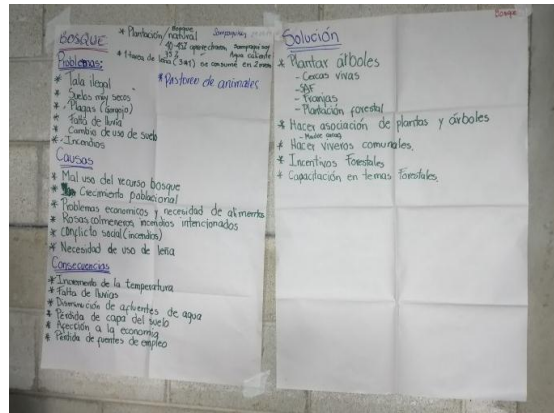 BOSQUE
* Plantación/Bosque natural
40-45% aprovechan,
35%
* 1 tarea de leña (3*1) se consume en 2 meses
Agua caliente
Problemas:
* Pastoreo de animales
* Tala ilegal
* Suelos muy secos
* Plagas (gorgojo)
* Falta de lluvia
* Cambio de uso de suelo
* Incendios
Causas
* Mal uso del recurso bosque
* Crecimiento poblacional
* Problemas economicos y necesidad de alimentos
* Rosas colmeneros incendios intencionados
* conflicto social (incendios)
* Necesidad de uso de leña
Consecuencias
* Incremento de la temperatura
* Falta de lluvias
* Disminución de afluentes de agua
* Pérdida de capa del suelo
* Afección a la economía
* Pérdida de fuentes de empleo
Bosque
Solución
* Plantar árboles
- Cercas vivas
- SAF
- Franjas
- Plantación forestal
* Hacer asociación de plantas y árboles
- Madre cacao
* Hacer viveros comunales.
* Incentivos Forestales
* Capacitación en temas Forestales.